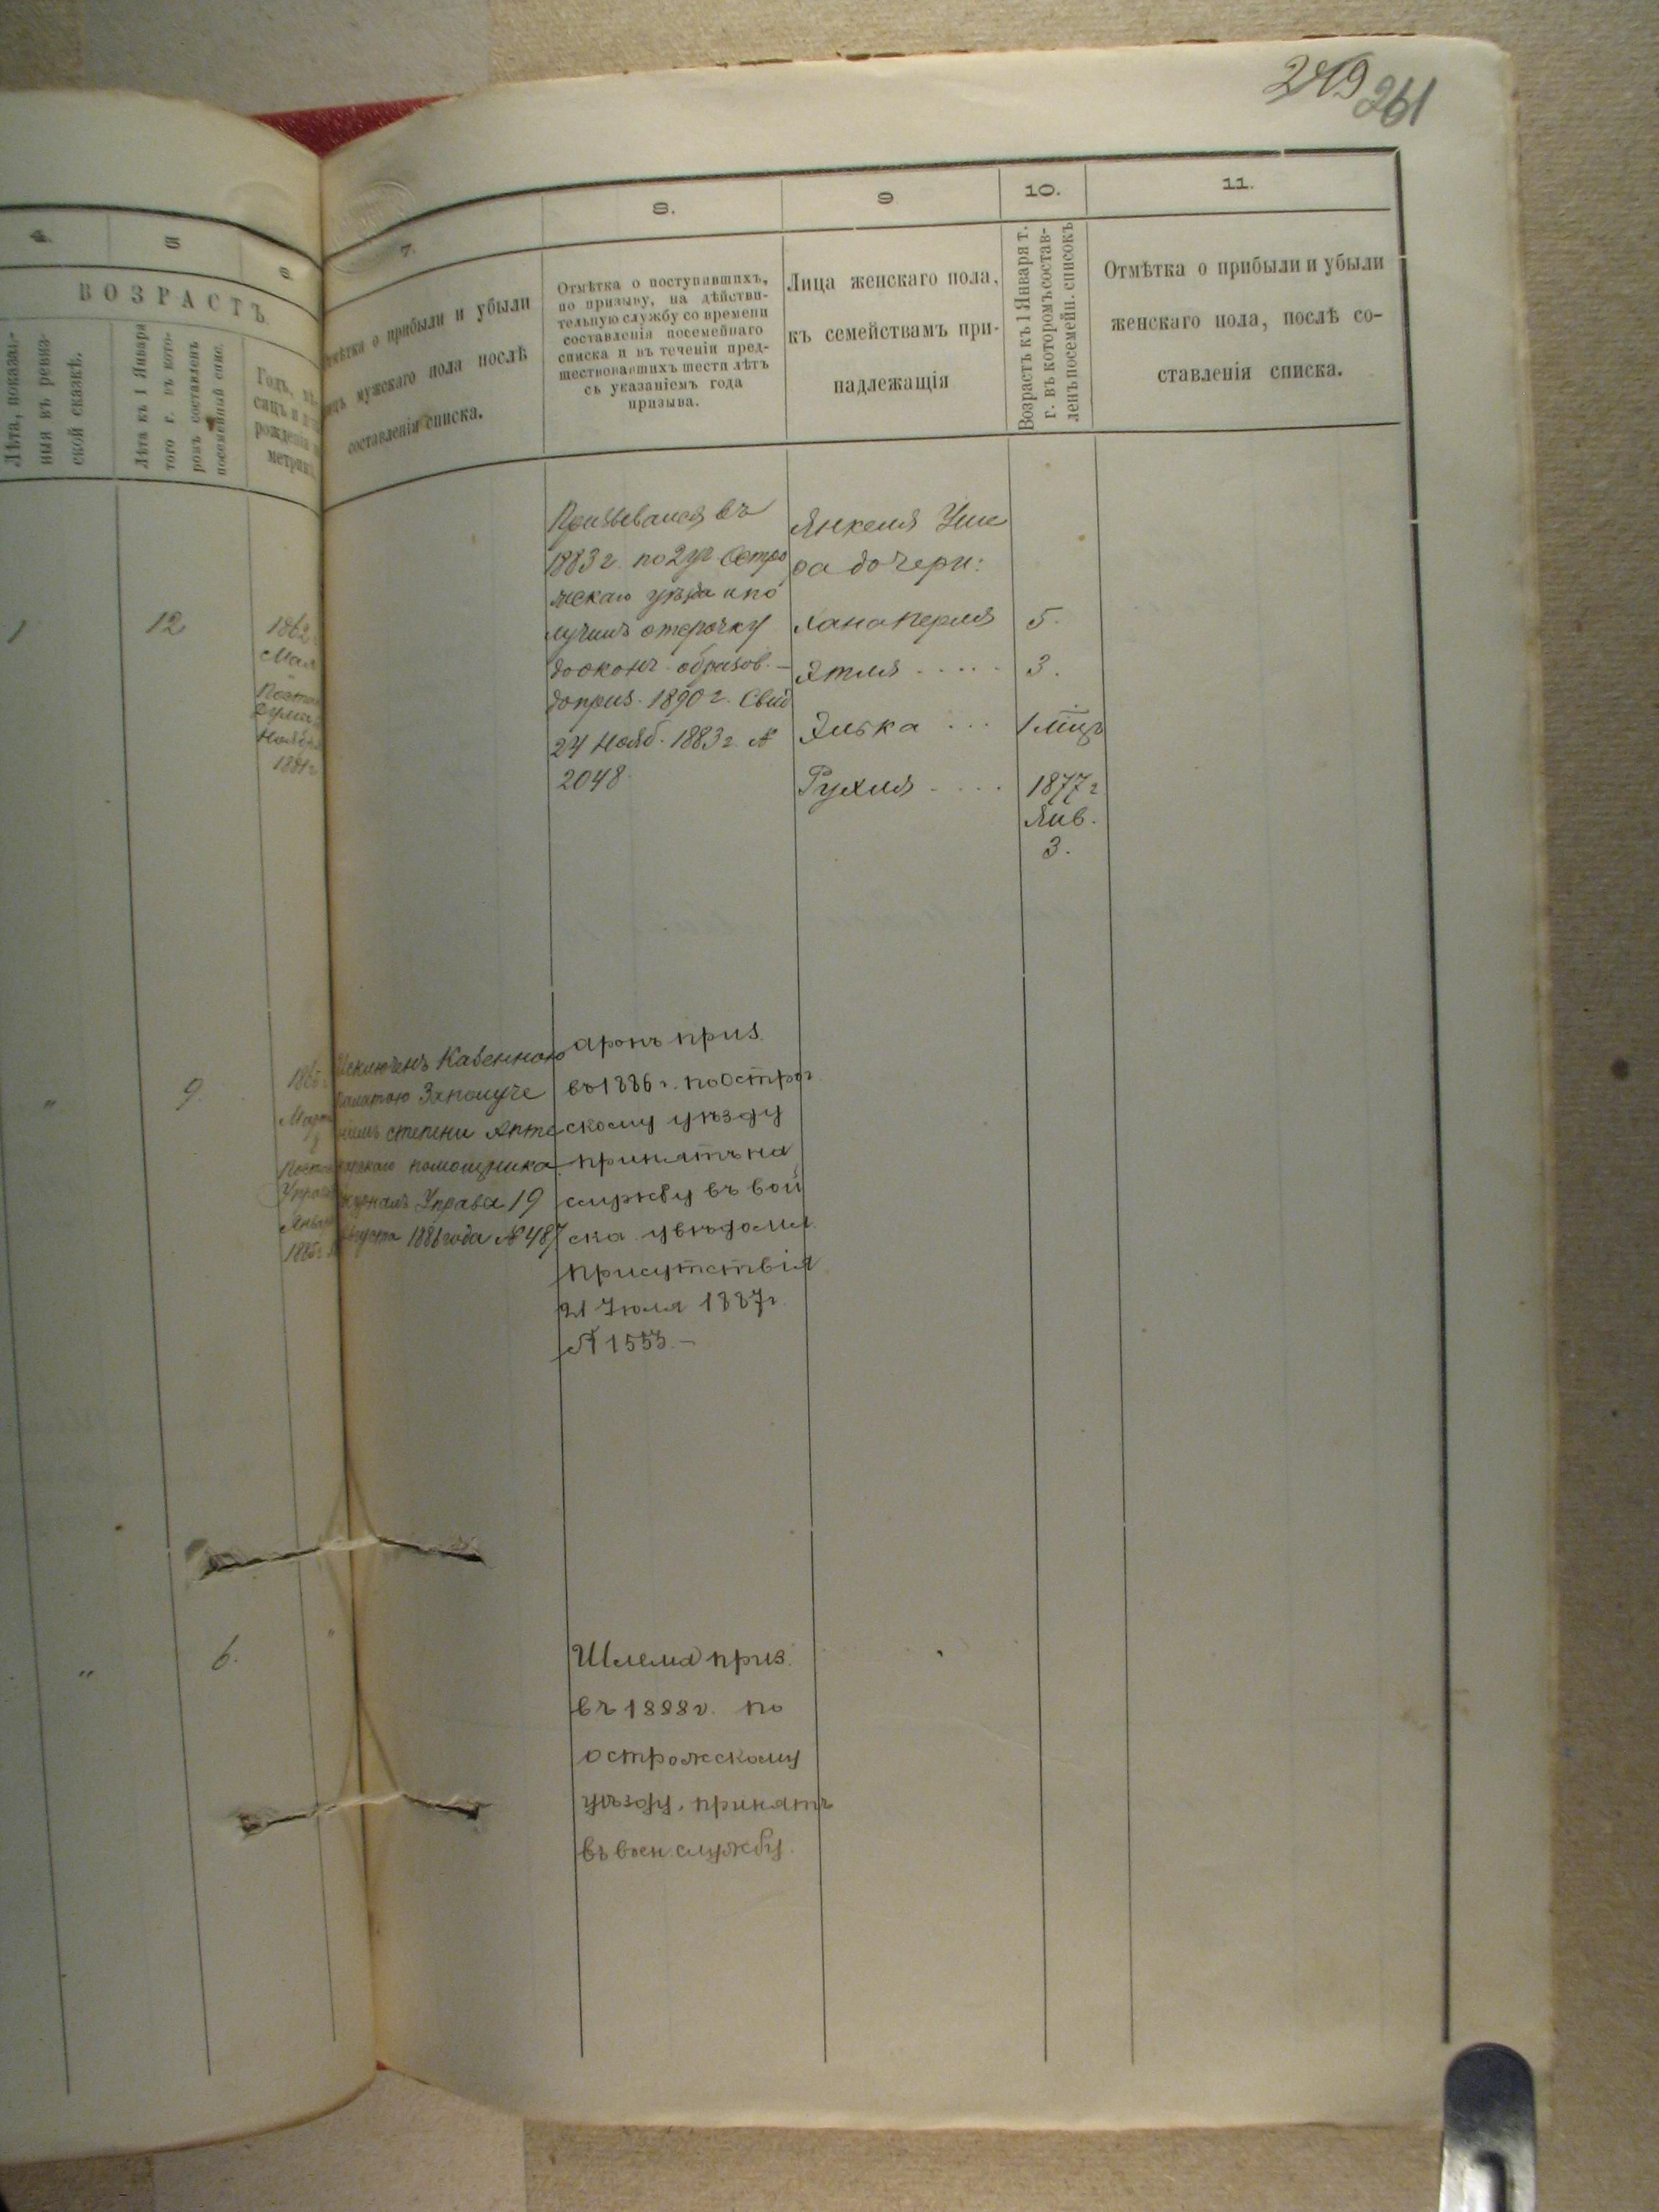 249 261
4.
5
6
ВОЗРАСТЪ
Лѣта, показан-
ныя въ ревиз-
ской сказкѣ.
Лѣта къ 1 Января
того г. въ кото-
ромъ составленъ
посемейный спис.
Годъ, мѣ-
сяцъ и
рожденія
метрик
1
12
1862
Мая
Ноября
1881 г
"
9.
Марта
1885 г.
"
6.
"
7.
8.
9
10.
11.
о прибыли и убыли
мужскаго пола послѣ
составленія списка.
Отмѣтка о поступившихъ,
по призыву, на дѣйстви-
тельную службу со времени
составленія посемейнаго
списка и въ теченіи пред-
шествовавшихъ шести лѣтъ
съ указаніемъ года
призыва.
Лица женскаго пола,
къ семействамъ при-
надлежащія
Возрастъ къ 1 Января т.
г. въ которомъ состав-
ленъ посемейн. списокъ
Отмѣтка о прибыли и убыли
женскаго пола, послѣ со-
ставленія списка.
Призывался въ
1883 г. по 2 уч. Остро
жскаго уѣзда и по
лучилъ отсрочку
до оконч. образов. –
до приз. 1890 г. Свид
24 Нояб. 1883 г. №
2048.
Янкеля Уше
ра дочери:
Хана Перля 5.
Этля ..... 3.
Элька ... 1 мѣц
Рухля .... 1877 г
Янв.
3.
Исключенъ Казенною
Палатою За получе
ніемъ степени Апте
карскаго помощника
журналъ Управы 19
Августа 1886 года № 487
Аронъ приз.
въ 1886 г. по Острог
скому уѣзду
принятъ на
службу въ вой
ска. увѣдомл.
присутствія
21 Іюля 1887 г.
№ 1553. –
Шлема приз.
въ 1888 г. по
острожскому
уѣзду, принятъ
въ воен. службу.